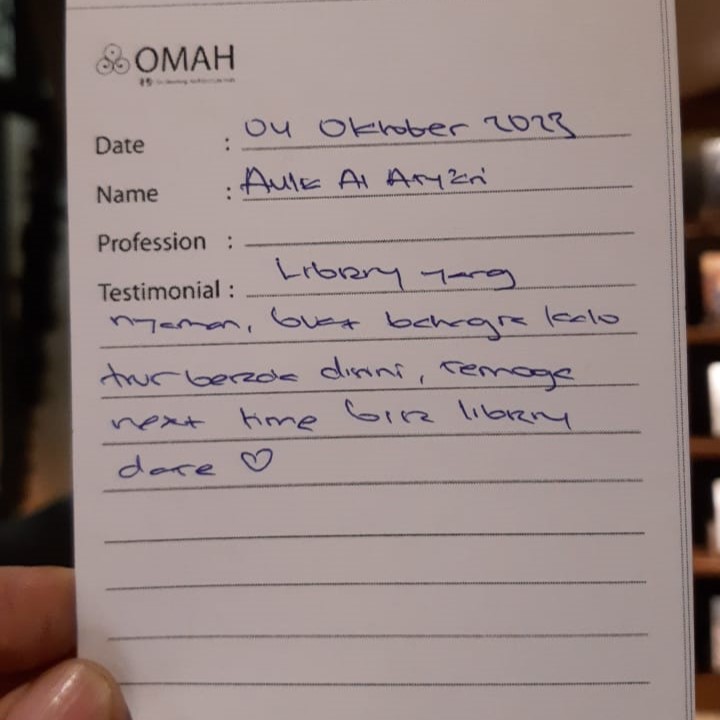 OMAH
Date : 04 Oktober 2023
Name : Aula Al Aryzri
Profession :
Testimonial : Library yang
nyaman, buat bahagia kalo
tiur berada disini, semoga
next time bisa library
date ♡